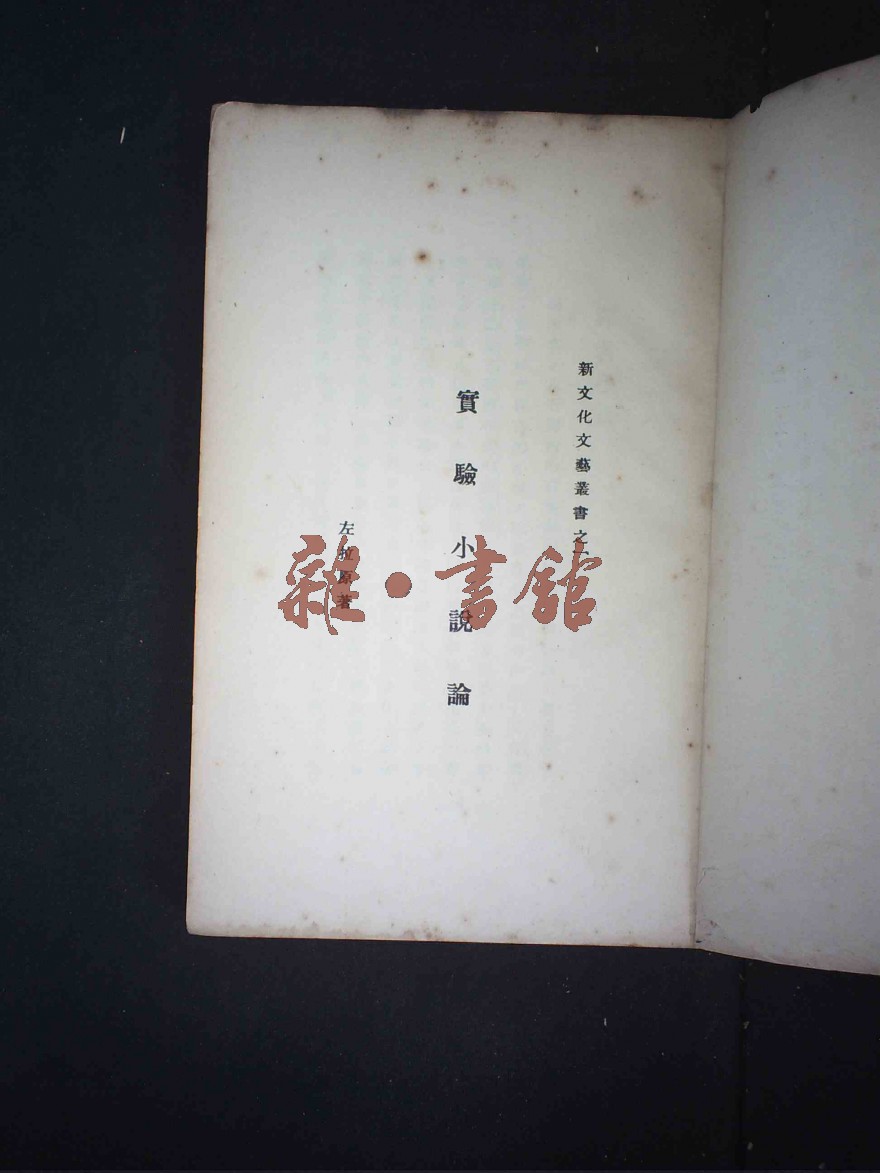 新文化文藝叢書之一
實驗小說論
左拉原著
雜·書館